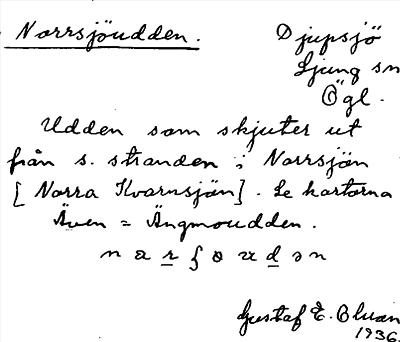 Norrsjöudden.
Djupsjö
Ljung sn
Ögl.
Udden som skjuter ut
från s. stranden i Norrsjön
[Norra Kvarnsjön]. Se kartorna
Även = Ängmoudden.
Gustaf E. Bluan
1936.